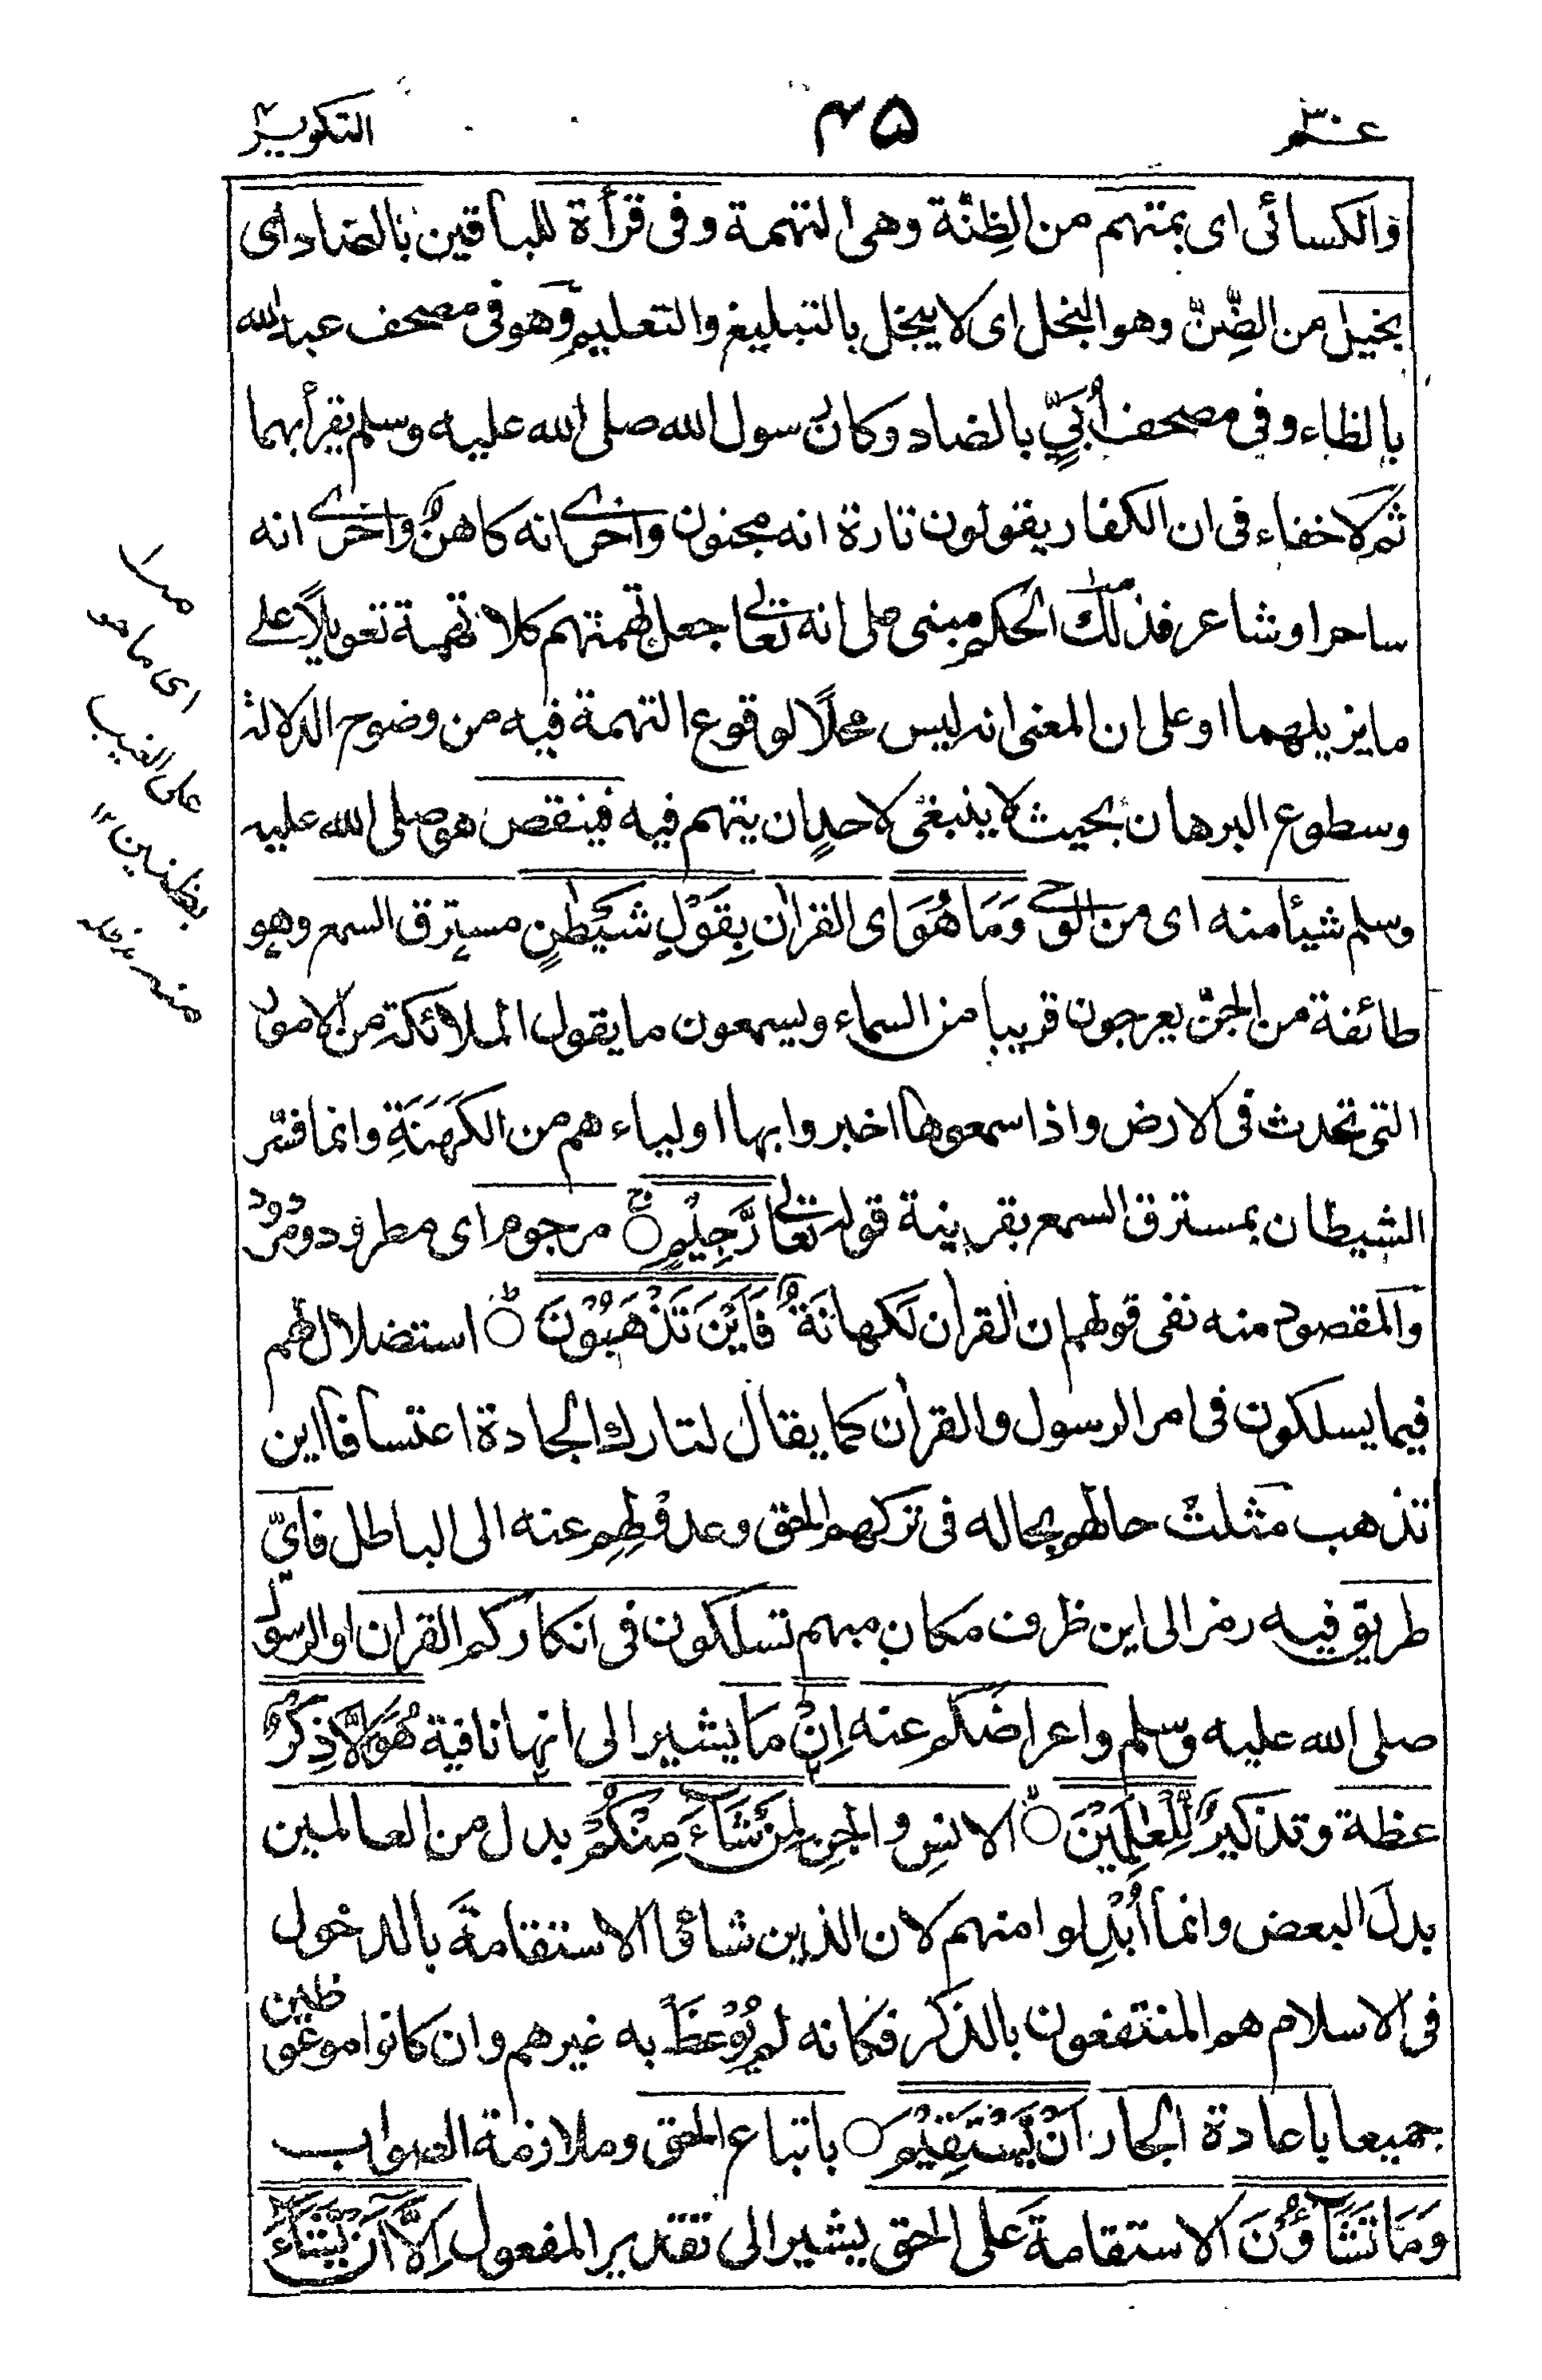 عم ٣٠
٤٥
التكوير
والكسائى اى بمتهم من الظِنّة وهى التهمة وفى قرأة للباقين بالضاد اى
بخيل من الضِّنّ وهو البخل اى لا يبخل بالتبليغ والتعليم وهو فى مصحف عبد الله
بالظاء وفى مصحف أُبَيٍّ بالضاد وكان رسول الله صلى الله عليه وسلم يقرأ بهما
ثم لا خفاء فى ان الكفار يقولون تارة انه مجنون واخرى انه كاهنٌ واخرى انه
ساحر او شاعر فذلك الحكم مبنى على انه تعالى جعل تهمتهم كلا تهمة تعويلاً على
ما يزيلهما او على ان المعنى انه ليس محلًا لوقوع التهمة فيه من وضوح الدلالة
وسطوع البرهان بحيث لا ينبغى لاحدٍ ان يتهم فيه فينقص هو صلى الله عليه
وسلم شيئا منه اى من الوحى وَمَا هُوَ اى القران بِقَوْلِ شَيْطٰنٍ مسترق السمع وهو
طائفة من الجنّ يعرجون قريبا من السماء ويسمعون ما يقول الملائكة من الامور
التى تحدث فى الارض واذا سمعوها اخبروا بها اولياء هم من الكَهَنَةِ وانما فسّر
الشيطان بمسترق السمع بقرينة قوله تعالى رَّجِيْمٍ ۝ مرجوم اى مطرود ومردود
والمقصود منه نفى قولهم ان القرأن لكهانَةٌ فَاَيْنَ تَذْهَبُوْنَ ۝ استضلال لهم
فيما يسلكون فى امر الرسول والقرأن كما يقال لتارك الجادة اعتسافا اين
تذهب مثلت حالهم بحاله فى تركهم الحق وعدولهم عنه الى الباطل فاىّ
طريق فيه رمز الى اين ظرف مكان مبهم تسلكون فى انكاركم القران او الرسول
صلى الله عليه وسلم واعراضكم عنه اِنْ ما يشير الى انها نافية هُوَ اِلَّا ذِكْرٌ
عظة وتذكيرٌ لِّلْعٰلَمِيْنَ ۝ الانسِ والجنِ لِمَنْ شَآءَ مِنْكُمْ بدل من العالمين
بدلَ البعض وانما أُبْدِلوا منهم لان الذين شاءوا الاستقامةَ بالدخول
فى الاسلام هم المنتفعون بالذكر فكانه لم يُوْعَظْ به غيرهم وان كانوا موعوظين
جميعا باعادة الجار اَنْ يَّسْتَقِيْمَ ۝ باتباع الحق وملازمة الصواب
وَمَا تَشَآؤُنَ الاستقامةَ على الحق يشير الى تقدير المفعول اِلَّآ اَنْ يَّشَآءَ
اى ما هو
على الغيب
بظنين ١٢
منه